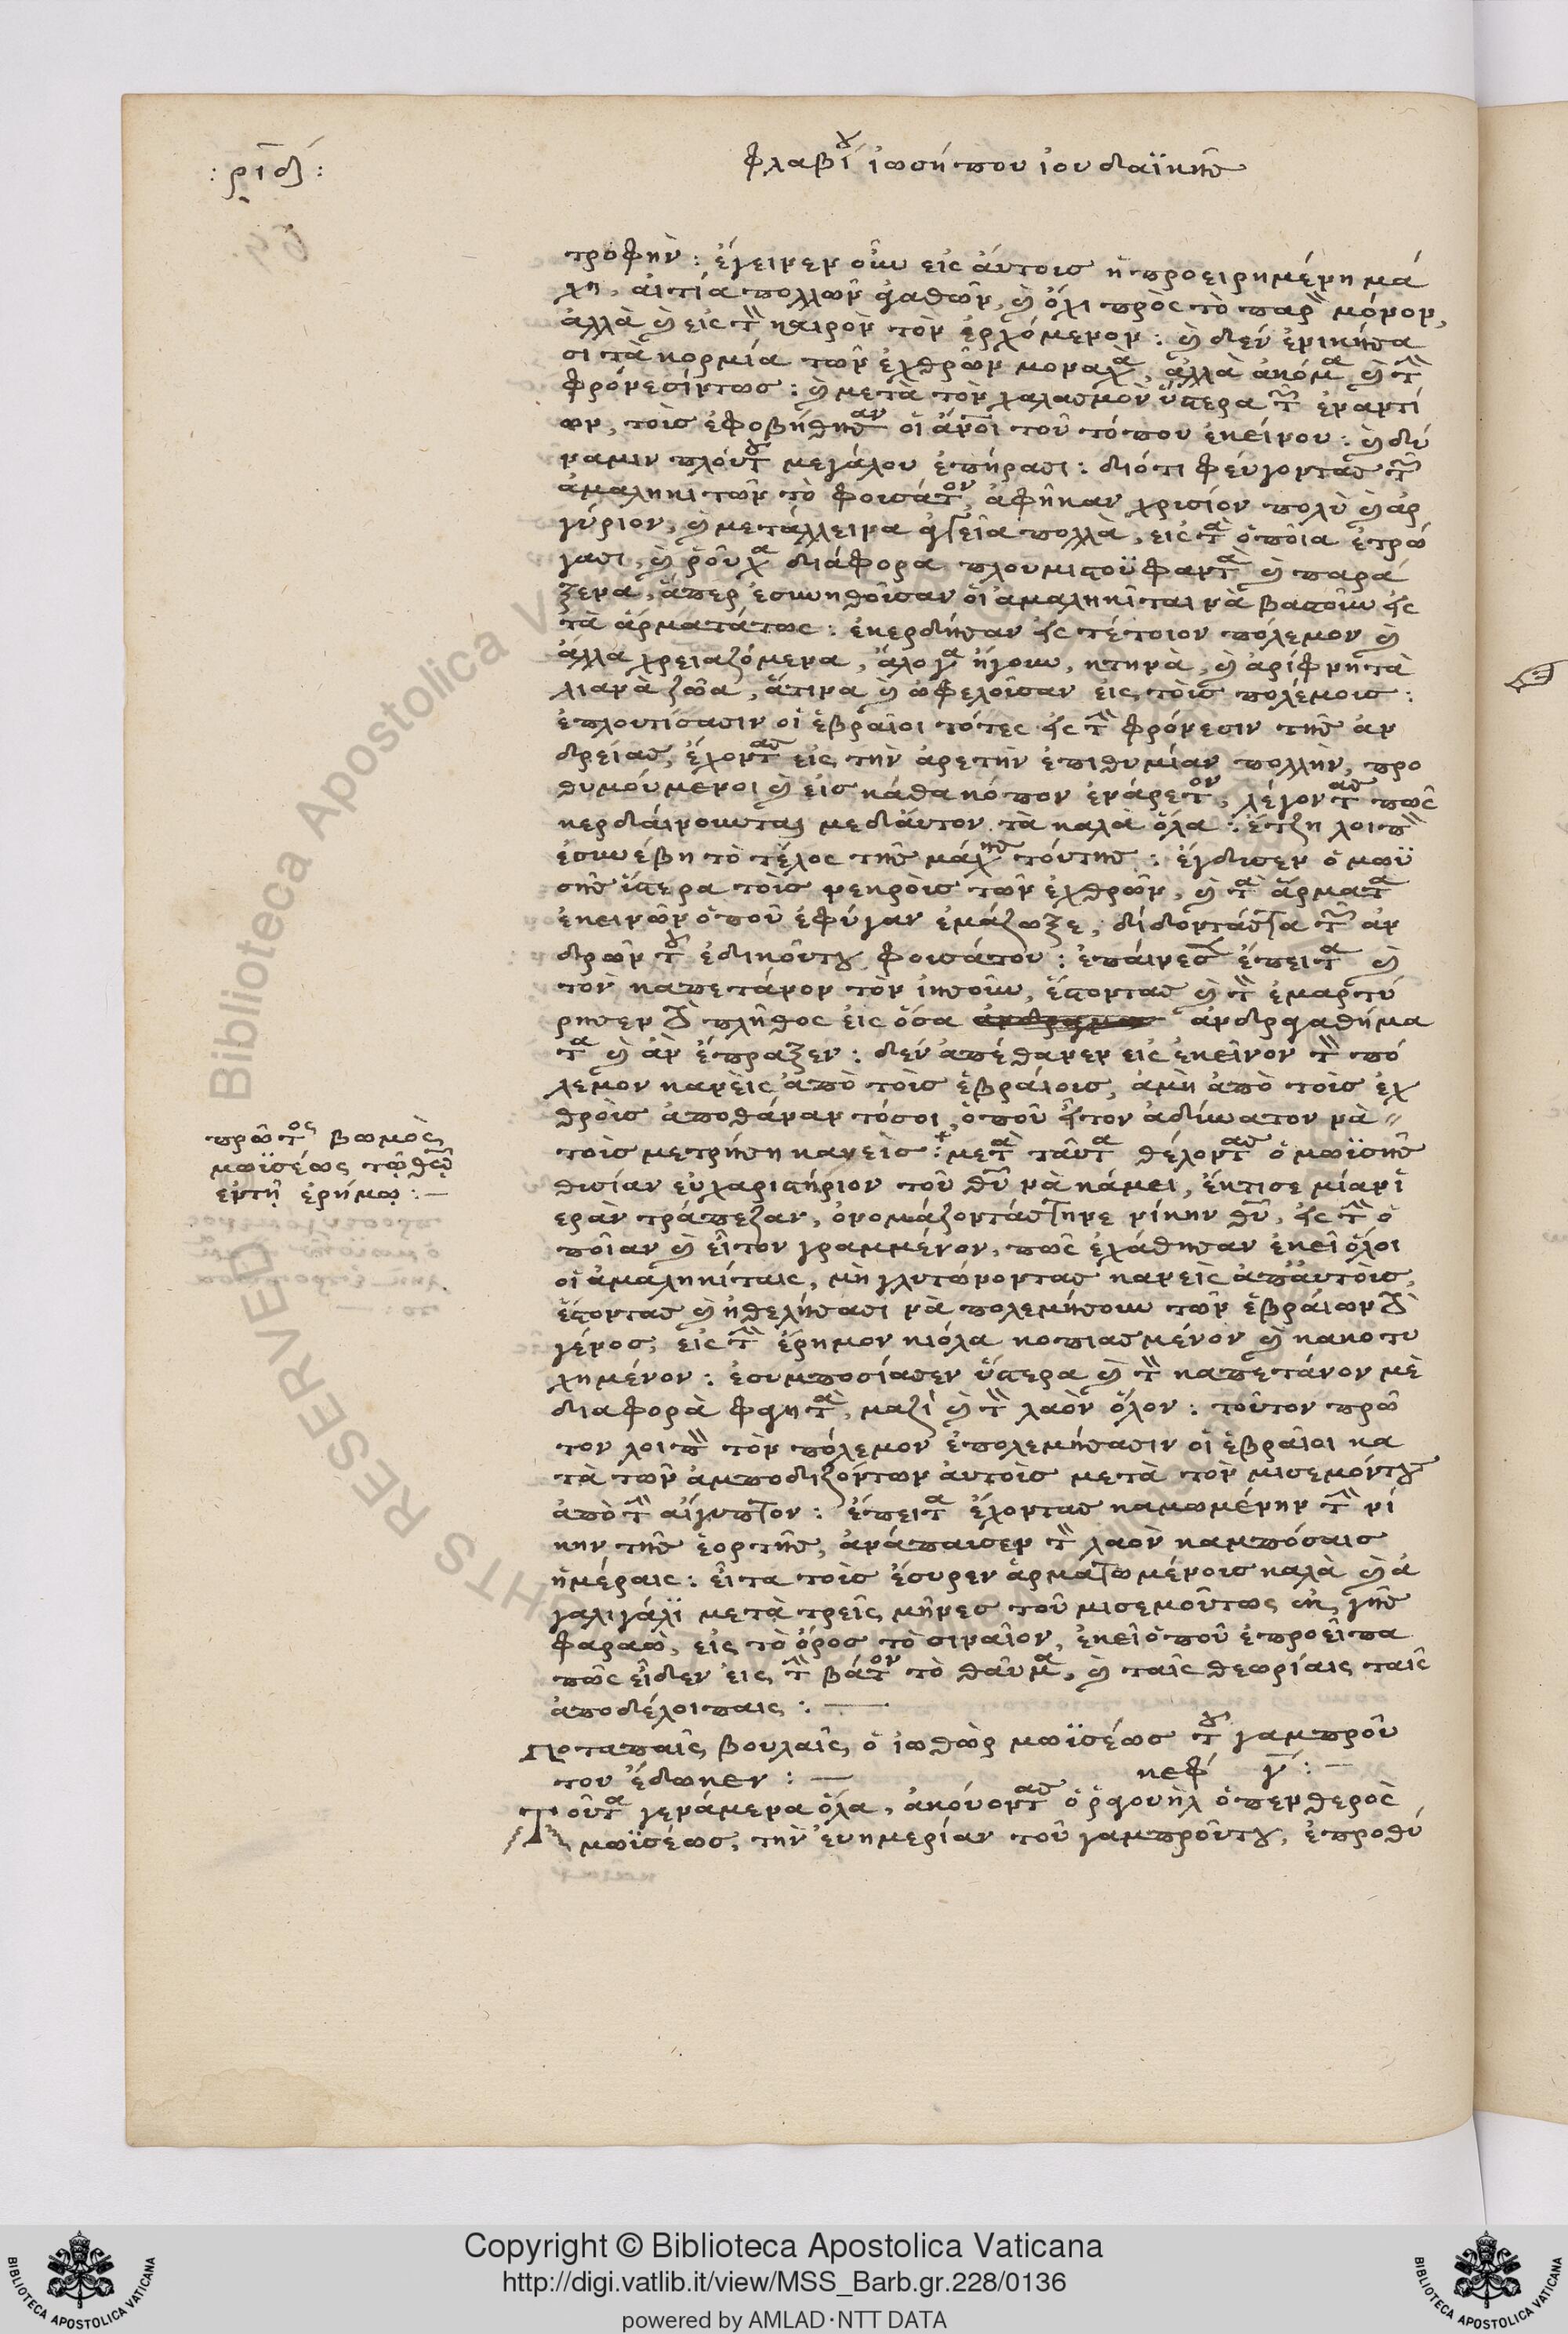 : ριδ :
φλαβίου ἰωσήπου ἰουδαϊκῆσ
τροφὴν : ἔγεινεν οὖν εἰς ἀυτοισ ἡ προειρημένη μά
χη, ἀιτία πολλῶν ἀγαθῶν, καὶ ὄχι πρὸς τὸ παρὸν μόνον,
ἀλλὰ καὶ εἰς τὸν καιρὸν τὸν ἐρχόμενον : καὶ δεν ἐνικήσα
σι τὰ κορμία τῶν ἐχθρῶν μοναχὰ, ἀλλὰ ἀκόμα καὶ τὴν
φρόνεσίντωσ : καὶ μετὰ τὸν χαλασμὸν ὕστερα τῶν ἐναντί
ων, τοὶσ ἐφοβήθησαν οἱ ἄνοι τοῦ τόπου ἐκείνου : καὶ δύ
ναμιν πλούτου μεγάλου ἐπήρασι : διότι φεύγοντασ τῶν
ἀμαληκιτῶν τὸ φοισάτον, ἀφῆκαν χρισίον πολὺ καὶ ἀρ
γύριον, καὶ μετάλλεινα ἀγγεῖα πολλὰ, εις τὰ ὁποῖα ἐτρώ
γασι, καὶ ῥοῦχα διάφορα πλουμιστοϋφαντὰ καὶ παρά
ξενα, ἅπερ ἐσυνηθοῖσαν οἱ ἀμαληκῖται νὰ βαστοῦν εἰς
τὰ ἄρματάτως : ἐκερδήσαν εἰς τέτοιον πόλεμον καὶ
ἄλλα χρειαζόμενα, ἄλογα ἤγουν, κτηνὰ, καὶ ἀρίφνητα
λιανὰ ζῶα, ἅτινα καὶ ὠφελοῖσαν εἰς τοὶσ πολέμοισ :
ἐπλουτίσασιν οἱ ἑβραῖοι τότες εἰς τὴν φρόνεσιν τῆσ ἀν
δρείασ, ἔχοντασ εἰς τὴν ἀρετὴν ἐπιθυμίαν πολλὴν, προ
θυμούμενοι καὶ εἰσ κάθα κόπον ἐνάρετον, λέγοντασ πῶς
κερδαίνουνται μεδἀυτον τὰ καλὰ ὅλα : ἔτζη λοιπὸν
ἐσυνέβη τὸ τέλος τῆσ μάχησ τούτησ : ἔγδισεν ὁ μωϋ
σῆσ ὕστερα τοὶσ νεκροὶσ τῶν ἐχθρῶν, καὶ τὰ ἄρματα
ἐκεινῶν ὁποῦ ἐφύγαν ἐμάζωξε, δίδοντάστα τῶν ἀν
δρῶν τοῦ ἐδικοῦντου φοισάτου : ἐπαίνεσε ἔπειτα καὶ
τὸν καπετάνον τὸν ἰησοῦν, ἔστοντασ καὶ τὸν ἐμαρτύ
ρησεν τὸ πλῆθος εἰς ὅσα ἀνδραγαθήμα
τα καὶ ἂν ἔπραξεν : δεν ἀπέθανεν εἰς ἐκεῖνον τὸν πό
λεμον κανεὶς ἀπὸ τοὶσ ἑβράιοισ, ἀμὴ ἀπὸ τοὶσ ἐχ
θροὶσ ἀποθάναν τόσοι, ὁποῦ ἦτον ἀδύνατον νὰ
τοὶσ μετρήση κανεὶσ : μετὰ ταῦτα θέλοντασ ὁ μωϊσῆσ
θυσίαν εὐχαριστήριον τοῦ θῦ νὰ κάμει, ἔκτισε μίανἱ
ερὰν τράπεζαν, ὀνομάζοντάστηνε νίκην θῦ, εἰς τὴν ὁ
ποῖαν καὶ εἶτον γραμμένον, πῶς ἐχάθησαν ἐκεῖ ὅλοι
οἱ ἀμαληκίταις, μὴ γλυτώνοντασ κανεὶς ἀπἀυτοὶσ,
ἔστοντασ καὶ ἠθελήσασι νὰ πολεμήσουν τῶν ἑβράιων τὸ
γένοσ, εἰς τὴν ἔρημον κιόλα κοπιασμένον καὶ κακοτυ
χημένον : ἐσυμποσίασεν ὕστερα καὶ τὸν καπετάνον μὲ
διαφορὰ φαγητὰ, μαζὶ καὶ τὸν λαὸν ὅλον : τοῦτον πρῶ
τον λοιπὸν τὸν πόλεμον ἐπολεμήσασιν οἱ ἑβραῖοι κα
τὰ τῶν ἀμποδιζόντων ἀυτοὶσ μετὰ τὸν μισεμόντους
ἀπὸ τὴν αἴγυπτον : ἔπειτα ἔχοντασ καμωμένην τὴν νί
κην τῆσ ἑορτῆσ, ἀνάπαισεν τὸν λαὸν καμπόσαισ
ἡμέραις : εἶτα τοὶσ ἔσυρεν ἀρματωμένοισ καλὰ καὶ ἀ
γαλιγάλϊ μετὰ τρεῖς μῆνεσ τοῦ μισεμοῦτως ἐκ γῆσ
φαραὼ, εἰς τὸ ὄροσ τὸ σιναῖον, ἐκεῖ ὁποῦ ἐπροεῖπα
πῶς εἶδεν εἰς τὴν βάτον τὸ θαῦμα, καὶ ταῖς θεωρίαις ταῖς
ἀποδέλοιπαις :
πρῶτος βωμὸς
μωϊσέως τῷ θεῷ
εντῇ ἐρήμῳ :
Ποταπαῖς βουλαῖς ὁ ἰωθὼρ μωϊσέωσ τοῦ γαμπροῦ
του ἔδωκεν : κεφ γ :
Τοῦτα γενάμενα ὅλα, ἀκούοντασ ὁ ῥαγουὴλ ὁ πενθερὸς
μωϊσέωσ, τὴν ἐυημερίαν τοῦ γαμπροῦντου, ἐπροθύ
Copyright © Biblioteca Apostolica Vaticana
http://digi.vatlib.it/view/MSS_Barb.gr.228/0136
powered by AMLAD·NTT DATA
BIBLIOTECA APOSTOLICA VATICANA
BIBLIOTECA APOSTOLICA VATICANA